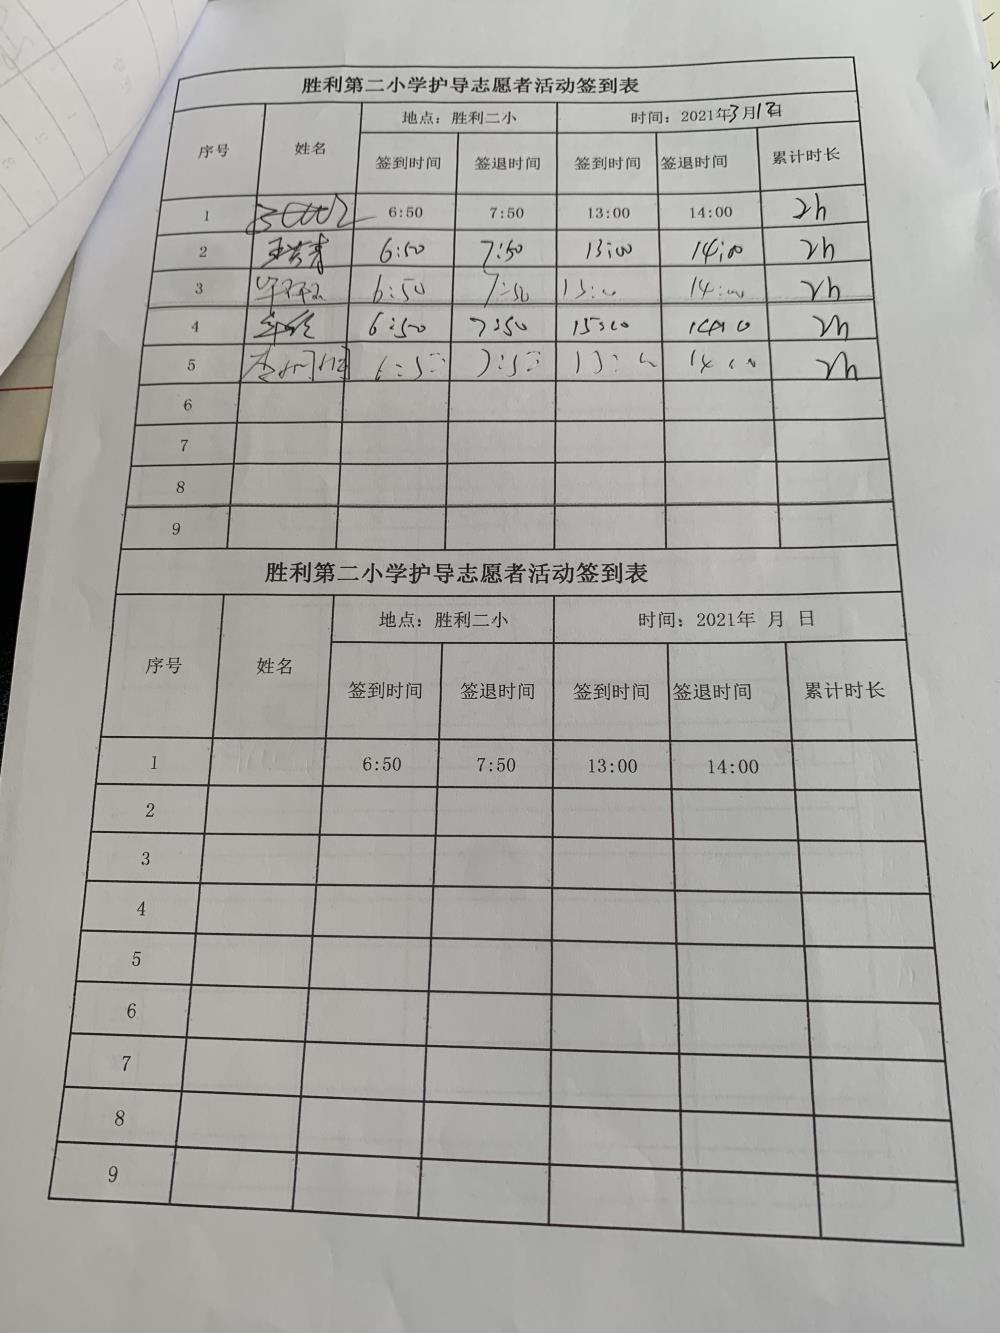 胜利第二小学护导志愿者活动签到表
序号 姓名 地点：胜利二小 时间：2021年3月1日
签到时间 签退时间 签到时间 签退时间 累计时长
1 6:50 7:50 13:00 14:00 2h
2 6:50 7:50 13:00 14:00 2h
3 6:50 7:50 13:00 14:00 2h
4 6:50 7:50 2h
5 6:50 7:50 13:00 14:00 2h
6
7
8
9
胜利第二小学护导志愿者活动签到表
序号 姓名 地点：胜利二小 时间：2021年 月 日
签到时间 签退时间 签到时间 签退时间 累计时长
1 6:50 7:50 13:00 14:00
2
3
4
5
6
7
8
9